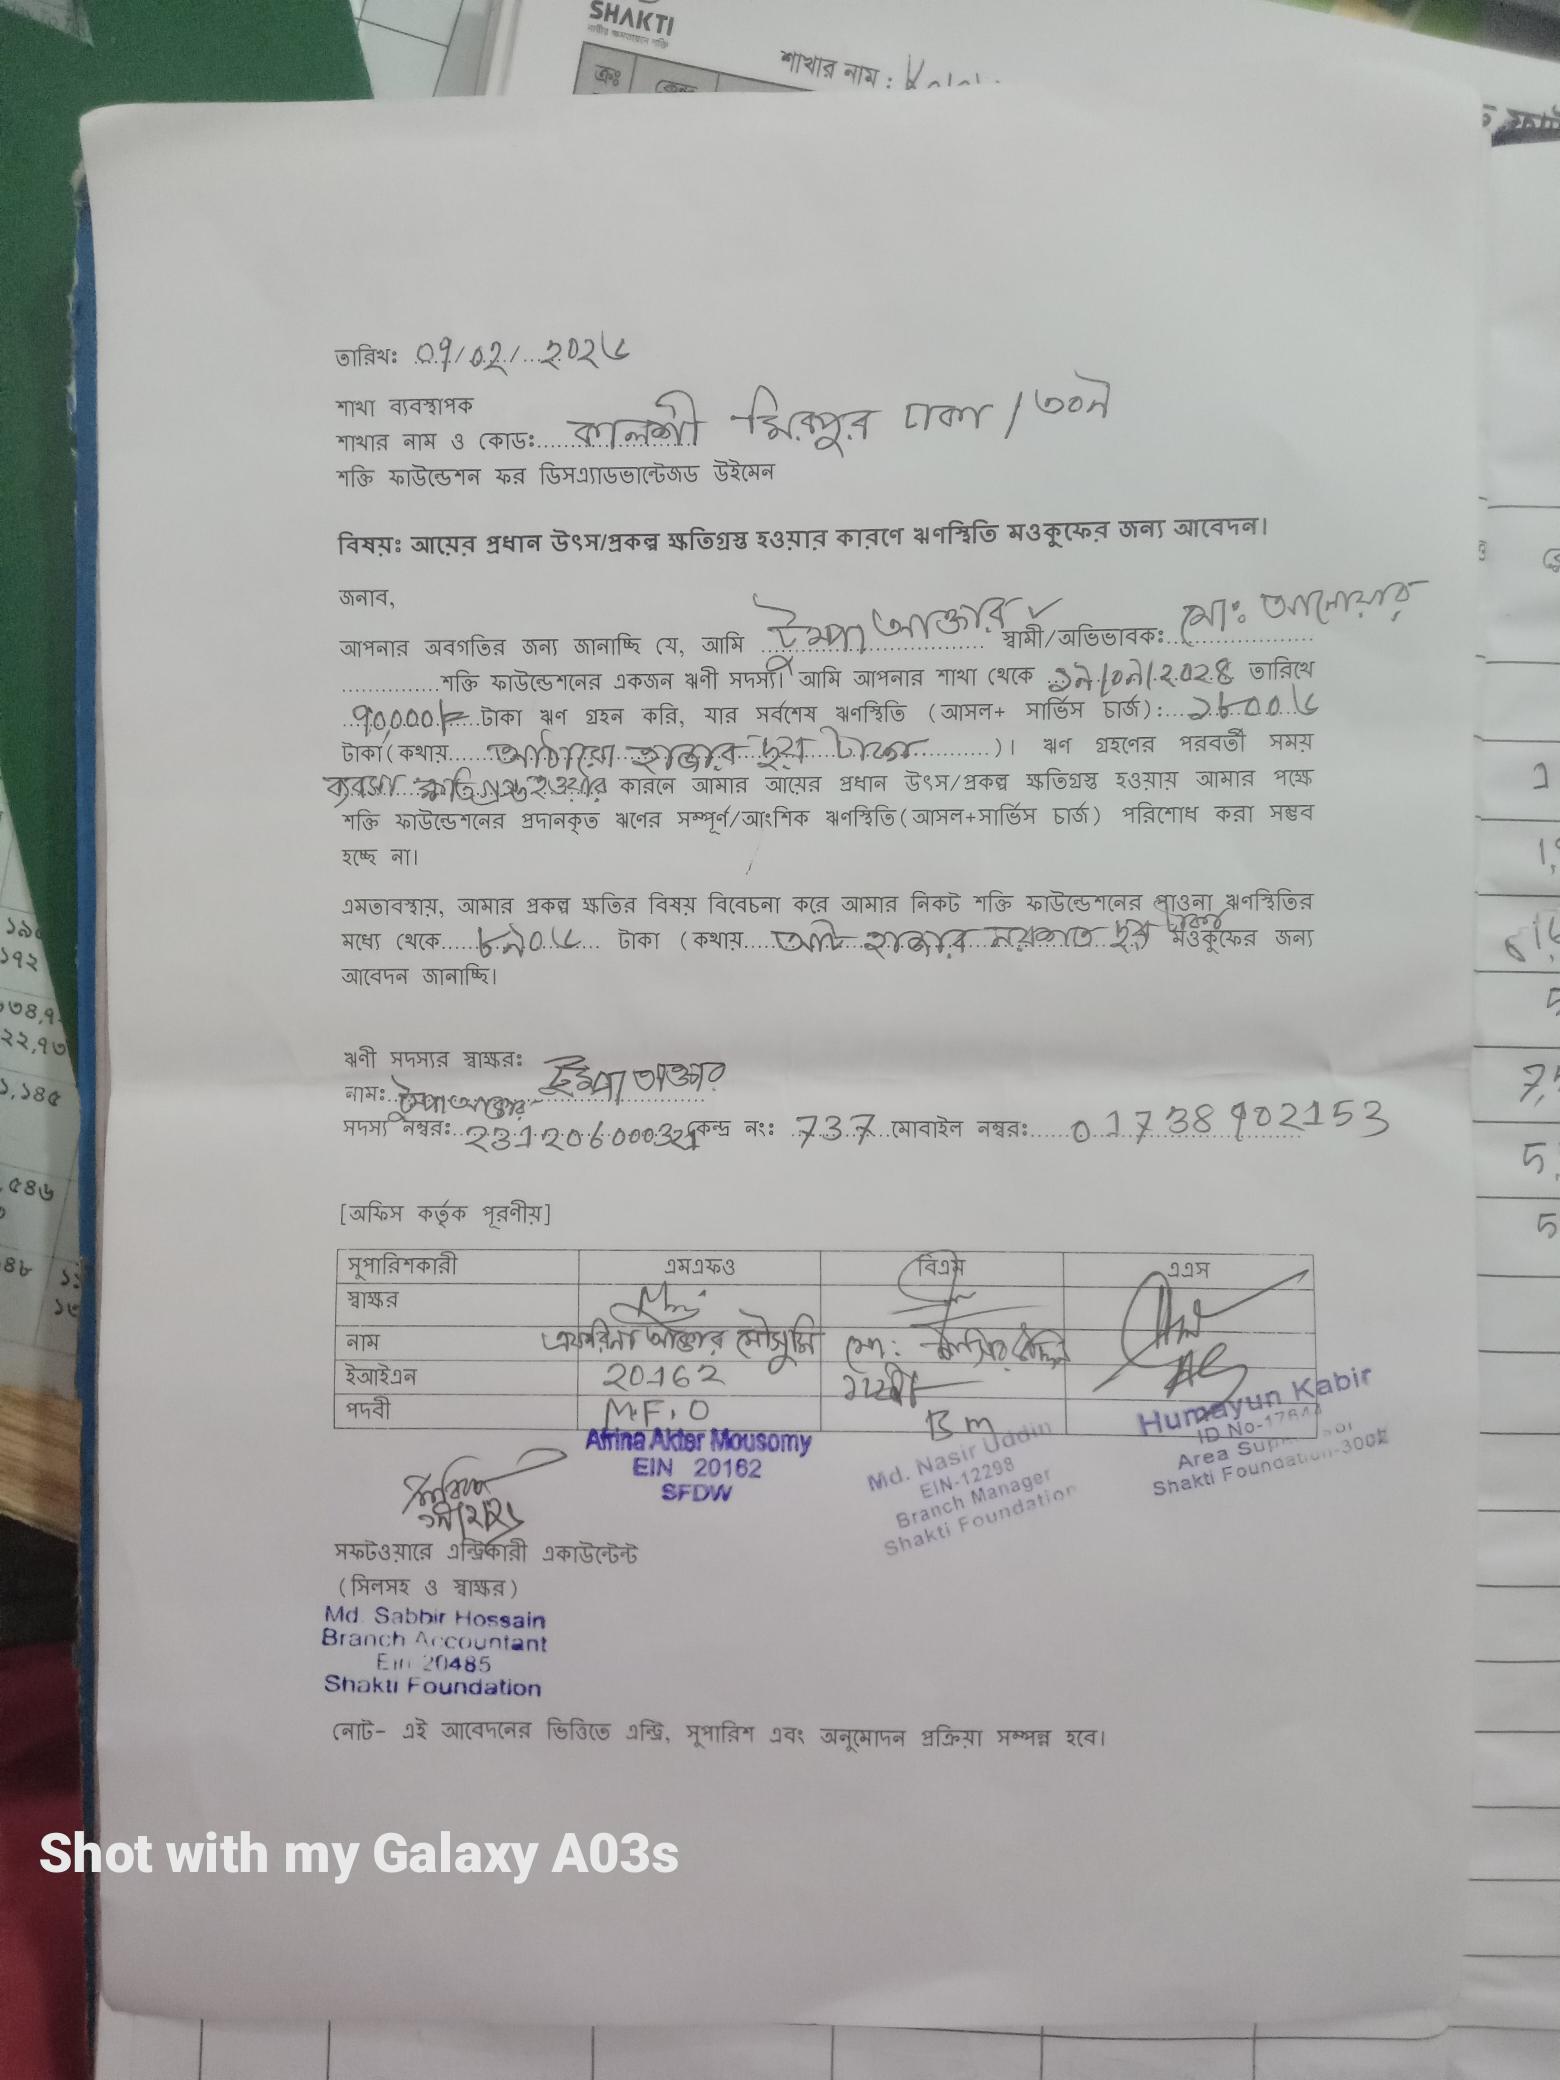 SHAKTI
শাখার নাম :
ক্রঃ
তারিখঃ ০৭/০২/২০২৬
শাখা ব্যবস্থাপক
শাখার নাম ও কোডঃ কালশী মিরপুর ঢাকা /৩০৯
শক্তি ফাউন্ডেশন ফর ডিসএ্যাডভান্টেজড উইমেন
বিষয়ঃ আয়ের প্রধান উৎস/প্রকল্প ক্ষতিগ্রস্ত হওয়ার কারণে ঋণস্থিতি মওকুফের জন্য আবেদন।
জনাব,
আপনার অবগতির জন্য জানাচ্ছি যে, আমি টুম্পা আক্তার স্বামী/অভিভাবকঃ মোঃ আনোয়ার
শক্তি ফাউন্ডেশনের একজন ঋণী সদস্য। আমি আপনার শাখা থেকে ১৯/০৯/২০২৪ তারিখে
৭০,০০০/= টাকা ঋণ গ্রহন করি, যার সর্বশেষ ঋণস্থিতি (আসল+ সার্ভিস চার্জ): ১৮০০৬
টাকা(কথায় আঠারো হাজার ছয় টাকা )। ঋণ গ্রহণের পরবর্তী সময়
ব্যবসা ক্ষতিগ্রস্ত হওয়ার কারনে আমার আয়ের প্রধান উৎস/প্রকল্প ক্ষতিগ্রস্ত হওয়ায় আমার পক্ষে
শক্তি ফাউন্ডেশনের প্রদানকৃত ঋণের সম্পূর্ণ/আংশিক ঋণস্থিতি(আসল+সার্ভিস চার্জ) পরিশোধ করা সম্ভব
হচ্ছে না।
এমতাবস্থায়, আমার প্রকল্প ক্ষতির বিষয় বিবেচনা করে আমার নিকট শক্তি ফাউন্ডেশনের পাওনা ঋণস্থিতির
মধ্যে থেকে ৮৯০৬ টাকা (কথায় আট হাজার নয়শত ছয় টাকা মওকুফের জন্য
আবেদন জানাচ্ছি।
ঋণী সদস্যর স্বাক্ষরঃ টুম্পা আক্তার
নামঃ টুম্পা আক্তার
সদস্য নম্বরঃ কেন্দ্র নংঃ 737 মোবাইল নম্বরঃ 01738902153
[অফিস কর্তৃক পূরণীয়]
সুপারিশকারী এমএফও বিএম এএস
স্বাক্ষর
নাম এফরিনা আক্তার মৌসুমি মো: নাসির উদ্দিন
ইআইএন 20162
পদবী M.F.O B m
Afrina Akter Mousomy
EIN 20162
SFDW
Md. Nasir Uddin
EIN-12298
Branch Manager
Shakti Foundation
Humayun Kabir
ID No-
Area
Shakti Foundation-300
সফটওয়ারে এন্ট্রিকারী একাউন্টেন্ট
(সিলসহ ও স্বাক্ষর)
Md. Sabbir Hossain
Branch Accountant
Ein 20485
Shakti Foundation
নোট- এই আবেদনের ভিত্তিতে এন্ট্রি, সুপারিশ এবং অনুমোদন প্রক্রিয়া সম্পন্ন হবে।
Shot with my Galaxy A03s